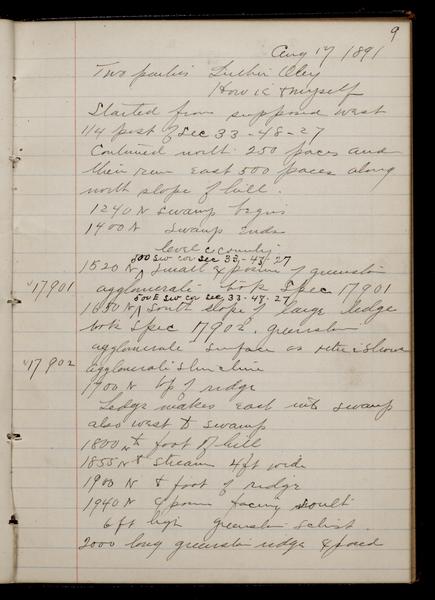 9
Aug 17 1891
Two parties Luther Oley
How ie & myself
Started from supposed west
1/4 post of Sec 33-48-27
Continued north 250 paces and
then run east 500 paces along
north slope of hill.
1240 N swamp begins
1400 N Swamp Ends
level country
500 SW cor sec 33-48-27
1520 N Small exposure of greenston
17901 agglomerate took Spec 17901
500 E SW cor sec. 33-48-27
1650 N South slope of large ledge
took Spec 17902. greenston
agglomerate surface as shows
17902 agglomerate
1700 N top of ridge
Ledge makes east into swamp
also west to swamp
1800 N to foot of hill
1855 N stream 4 ft wide
1900 N foot of ridge
1940 N facing south
6 ft high greenston schist.
2000 long greenston ridge exposed